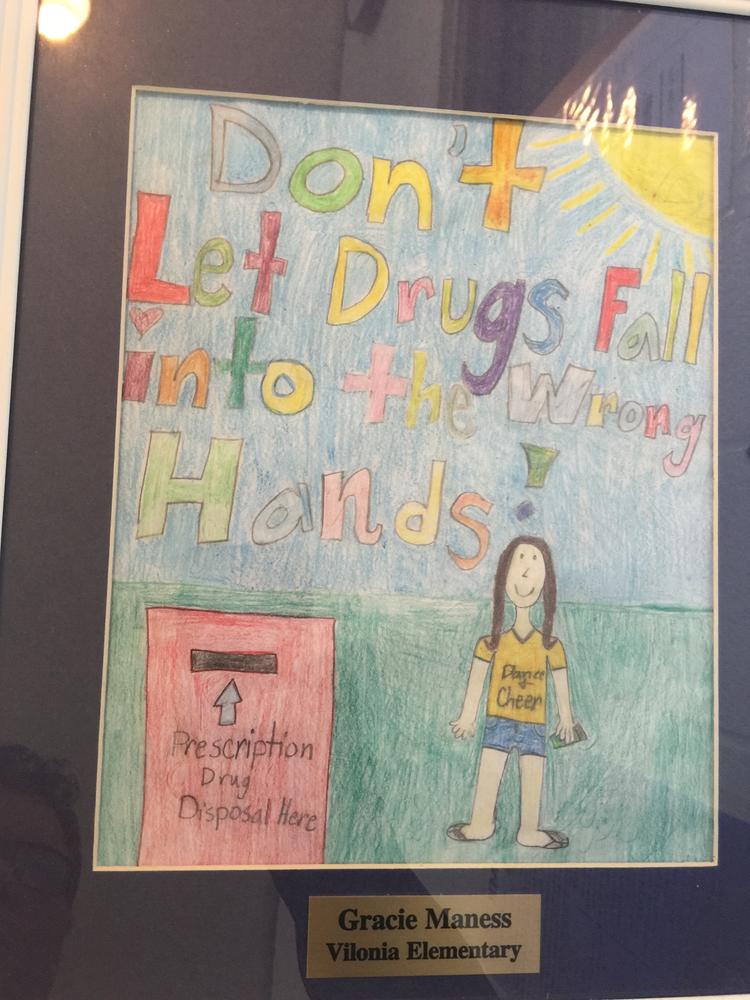 Don't
Let Drugs Fall
into the Wrong
Hands!
Prescription
Drug
Disposal Here
Dance
Cheer
Gracie Maness
Vilonia Elementary